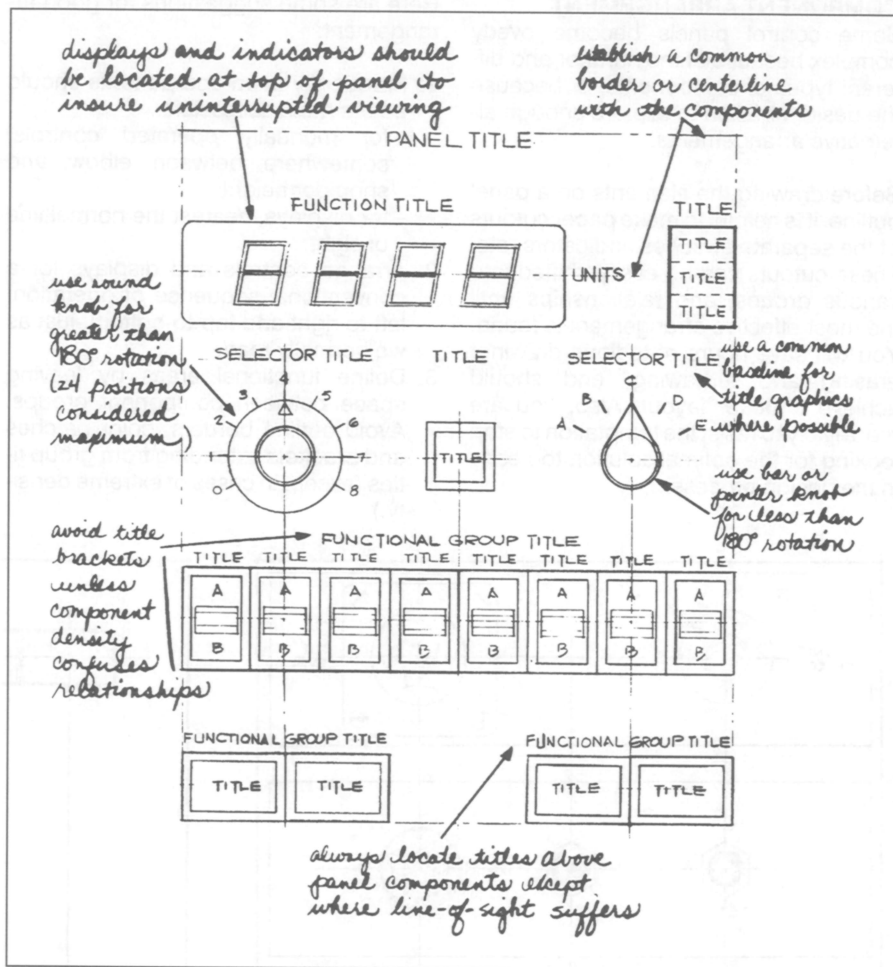 displays and indicators should
be located at top of panel to
insure uninterrupted viewing
establish a common
border or centerline
with the components
PANEL TITLE
FUNCTION TITLE
UNITS
TITLE
TITLE
TITLE
TITLE
use round
knob for
greater than
180° rotation
(24 positions
considered
maximum)
SELECTOR TITLE
TITLE
SELECTOR TITLE
use a common
baseline for
title graphics
where possible
0
3
5
6
7
8
TITLE
A
B
C
D
E
use bar or
pointer knob
for less than
180° rotation
avoid title
brackets
unless
component
density
confuses
relationships
FUNCTIONAL GROUP TITLE
TITLE TITLE TITLE TITLE TITLE TITLE TITLE TITLE
A A A A A A A A
B B B B B B B B
FUNCTIONAL GROUP TITLE
TITLE TITLE
FUNCTIONAL GROUP TITLE
TITLE TITLE
always locate titles above
panel components except
where line-of-sight suffers